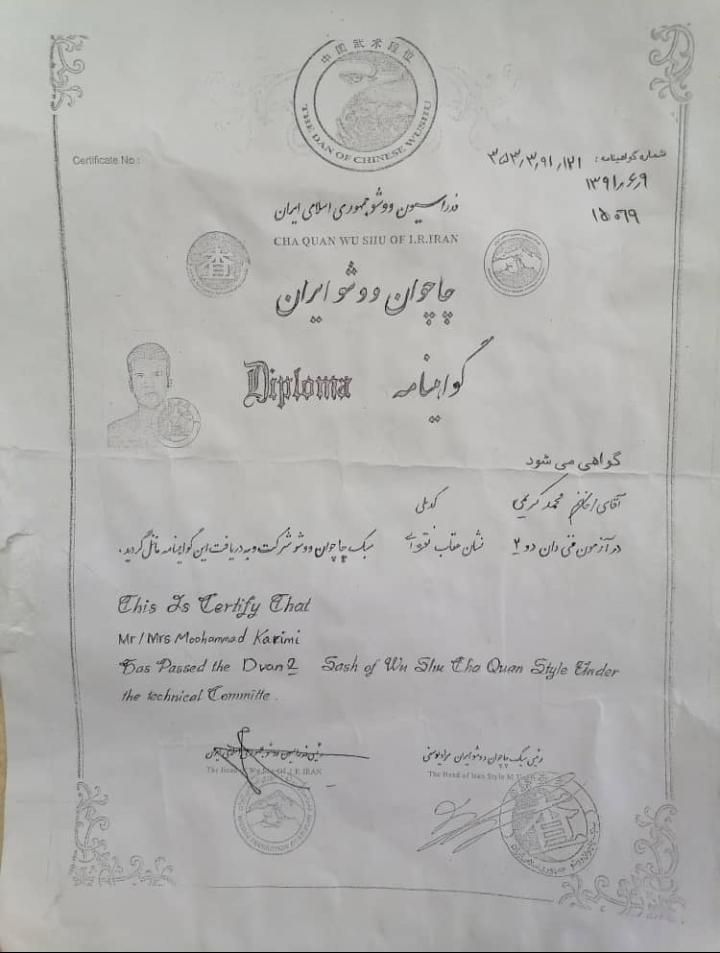 中国武术段位
THE DAN OF CHINESE WUSHU
Certificate No :
شماره گواهینامه : ۳۵۳٫۳٫۹۱٫۱۲۱
۱۳۹۱٫۶٫۹
۱۵۰۶۹
فدراسیون ووشو جمهوری اسلامی ایران
CHA QUAN WU SHU OF I.R.IRAN
查
چاچوان ووشو ایران
Diploma گواهینامه
گواهی می شود
آقای / خانم محمد کریمی کد ملی
در آزمون فنی دان دو ۲ نشان عقاب نقره‌ای سبک چاچوان ووشو شرکت و به دریافت این گواهینامه نائل گردید.
This Is Certify That
Mr / Mrs Moohammad Karimi
Has Passed the Dvan 2 Sash of Wu Shu Cha Quan Style Under
the technical Committe .
رئیس فدراسیون ووشو جمهوری اسلامی ایران رئیس سبک چاچوان ووشو ایران مراد یوسفی
The Head of Wu Shu Of I.R.IRAN The Head of Iran Style M
查